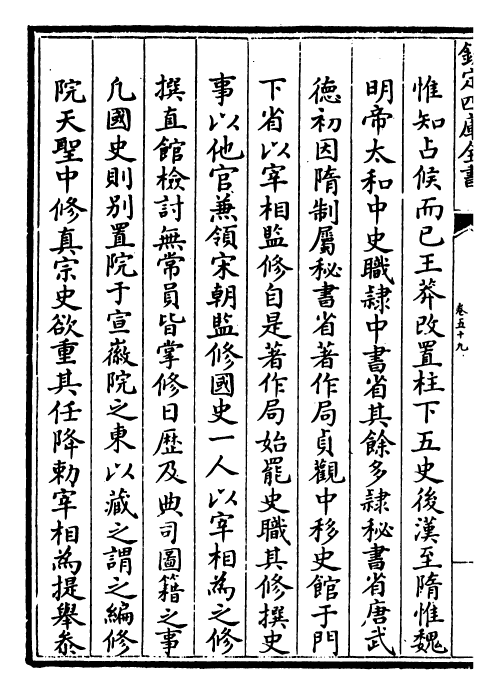 欽定四庫全書
卷五十九
惟知占候而已王莽改置柱下五史後漢至隋惟魏
明帝太和中史職隷中書省其餘多隷秘書省唐武
德初因隋制屬秘書省著作局貞觀中移史館于門
下省以宰相監修自是著作局始罷史職其修撰史
事以他官兼領宋朝監修國史一人以宰相為之修
撰直館檢討無常員皆掌修日歴及典司圖籍之事
凡國史則别置院于宣徽院之東以藏之謂之編修
院天聖中修真宗史欲重其任降勅宰相為提舉叅